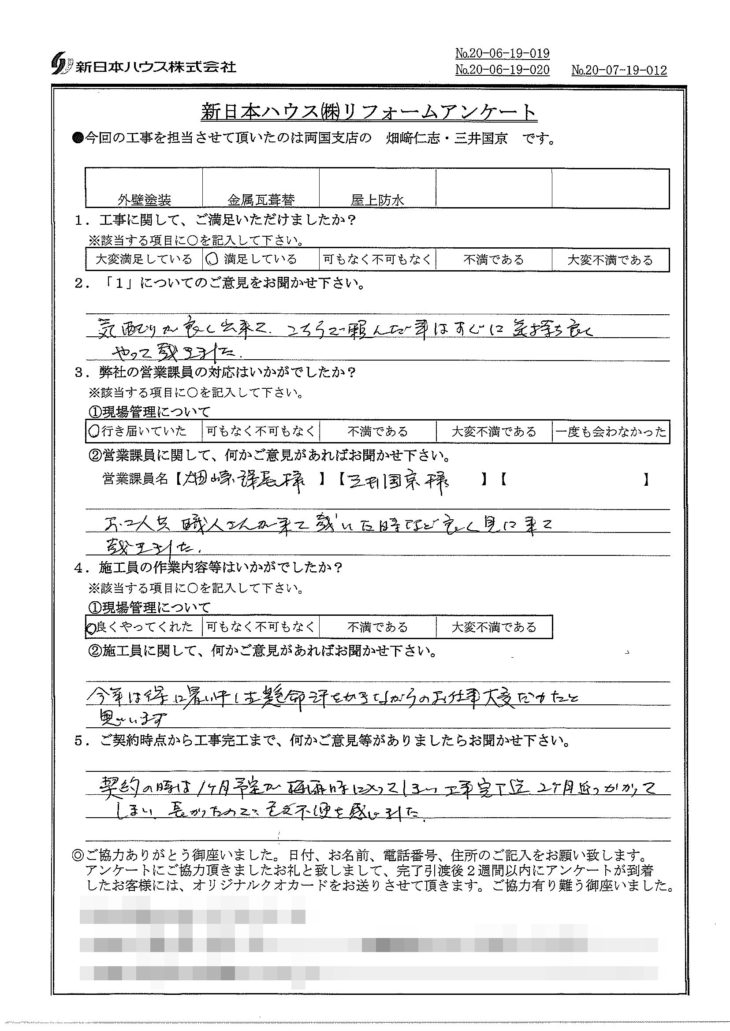 新日本ハウス株式会社
№20-06-19-019
№20-06-19-020 №20-07-19-012
新日本ハウス㈱リフォームアンケート
●今回の工事を担当させて頂いたのは両国支店の 畑﨑仁志・三井国京 です。
外壁塗装 金属瓦葺替 屋上防水
1．工事に関して、ご満足いただけましたか？
※該当する項目に○を記入して下さい。
大変満足している ○ 満足している 可もなく不可もなく 不満である 大変不満である
2．「1」についてのご意見をお聞かせ下さい。
気配りが良く出来て、こちらで頼んだ事はすぐに気持ち良く
やって戴きました。
3．弊社の営業課員の対応はいかがでしたか？
※該当する項目に○を記入して下さい。
①現場管理について
○行き届いていた 可もなく不可もなく 不満である 大変不満である 一度も会わなかった
②営業課員に関して、何かご意見があればお聞かせ下さい。
営業課員名【畑﨑課長様 】【三井国京様 】【 】
お二人共 職人さんが来て戴いた時など良く見に来て
戴きました。
4．施工員の作業内容等はいかがでしたか？
※該当する項目に○を記入して下さい。
①現場管理について
○良くやってくれた 可もなく不可もなく 不満である 大変不満である
②施工員に関して、何かご意見があればお聞かせ下さい。
今年は特に暑い中 汗をかきながらのお仕事大変だったと
思います
5．ご契約時点から工事完工まで、何かご意見等がありましたらお聞かせ下さい。
契約の時は1ヶ月予定が梅雨時に入ってしまい工事完了迄2ヶ月近くかかって
しまい 長かったので、 不便を感じました。
◎ご協力ありがとう御座いました。日付、お名前、電話番号、住所のご記入をお願い致します。
アンケートにご協力頂きましたお礼と致しまして、完了引渡後２週間以内にアンケートが到着
したお客様には、オリジナルクオカードをお送りさせて頂きます。ご協力有り難う御座いました。